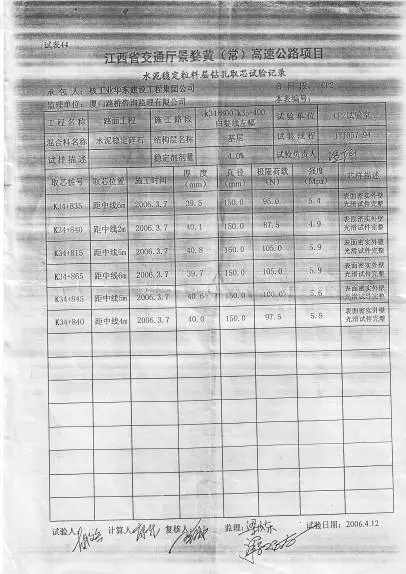 试表44
江西省交通厅景婺黄（常）高速公路项目
水泥稳定粒料层钻孔取芯试验记录
承包人：核工业华东建设工程集团公司 合同段：CP2
监理单位：厦门路桥咨询监理有限公司 本表编号：
工程名称 路面工程 施工路段 k34+800~k35+400 白婺线左幅 试验单位 CP2试验室
混合料名称 水泥稳定碎石 结构层名称 基层 试验规程 JTJ057-94
试样描述 稳定剂剂量 4.0% 试验负责人
取芯桩号 取芯位置 施工时间 厚度（mm） 直径（mm） 极限荷载（N） 强度（Mpa） 芯样描述
K34+835 距中线6m 2006.3.7 39.5 150.0 95.0 5.4 表面密实外壁光滑试件完整
K34+840 距中线2m 2006.3.7 40.1 150.0 87.5 4.9 表面密实外壁光滑试件完整
K34+815 距中线5m 2006.3.7 40.8 150.0 105.0 5.9 表面密实外壁光滑试件完整
K34+865 距中线6m 2006.3.7 39.7 150.0 105.0 5.9 表面密实外壁光滑试件完整
K34+845 距中线5m 2006.3.7 40.6 150.0 100.0 5.6 表面密实外壁光滑试件完整
K34+840 距中线4m 2006.3.7 40.0 150.0 97.5 5.5 表面密实外壁光滑试件完整
试验人： 计算人： 复核人： 监理： 试验日期：2006.4.12